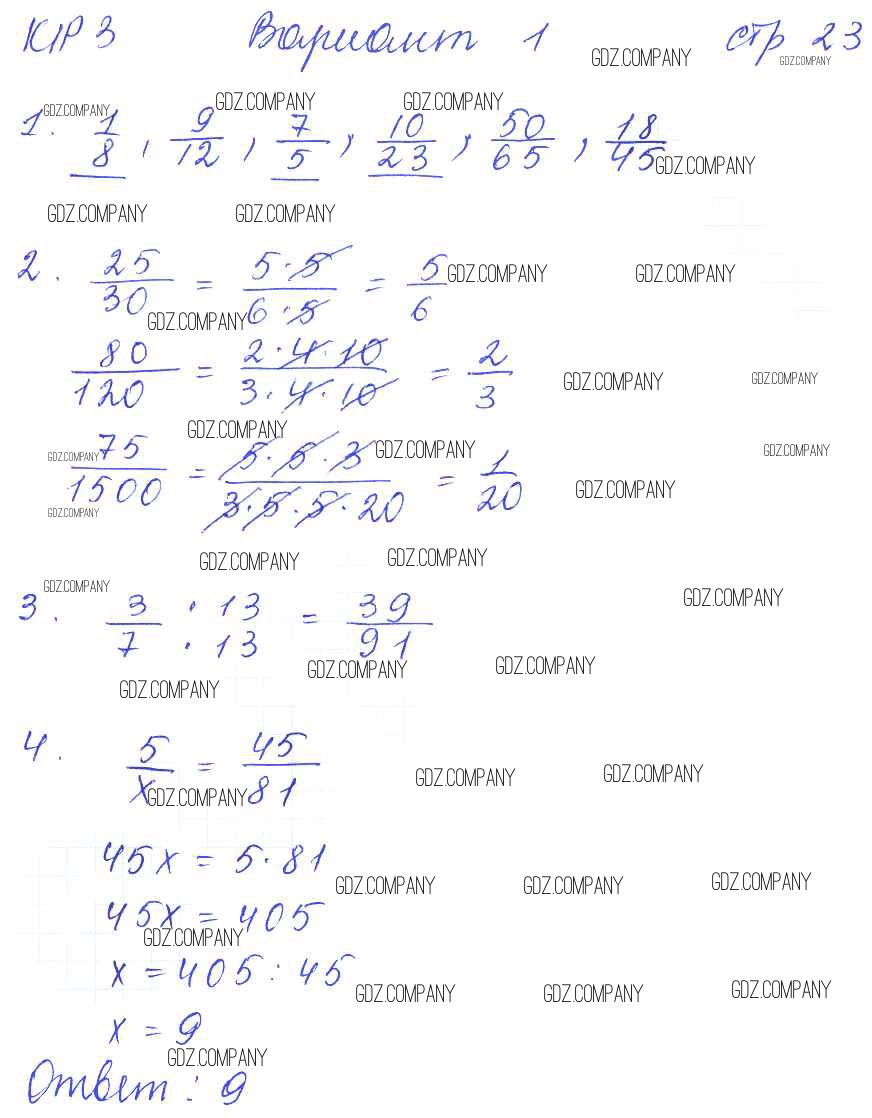 К/Р 3 Вариант 1 стр 23
GDZ.COMPANY GDZ.COMPANY
GDZ.COMPANY GDZ.COMPANY GDZ.COMPANY
1. 1/8, 9/12, 7/5, 10/23, 50/65, 18/45
GDZ.COMPANY
GDZ.COMPANY GDZ.COMPANY
2. 25/30 = 5·5/6·5 = 5/6
GDZ.COMPANY GDZ.COMPANY
GDZ.COMPANY
80/120 = 2·4·10/3·4·10 = 2/3
GDZ.COMPANY GDZ.COMPANY
GDZ.COMPANY GDZ.COMPANY GDZ.COMPANY
75/1500 = 5·5·3/3·5·5·20 = 1/20
GDZ.COMPANY GDZ.COMPANY
GDZ.COMPANY
GDZ.COMPANY GDZ.COMPANY
GDZ.COMPANY GDZ.COMPANY
3. 3·13/7·13 = 39/91
GDZ.COMPANY GDZ.COMPANY
GDZ.COMPANY
4. 5/x = 45/81
GDZ.COMPANY GDZ.COMPANY GDZ.COMPANY
45x = 5·81
GDZ.COMPANY GDZ.COMPANY GDZ.COMPANY
45x = 405
GDZ.COMPANY
x = 405 : 45
GDZ.COMPANY GDZ.COMPANY GDZ.COMPANY
x = 9
GDZ.COMPANY
Ответ: 9